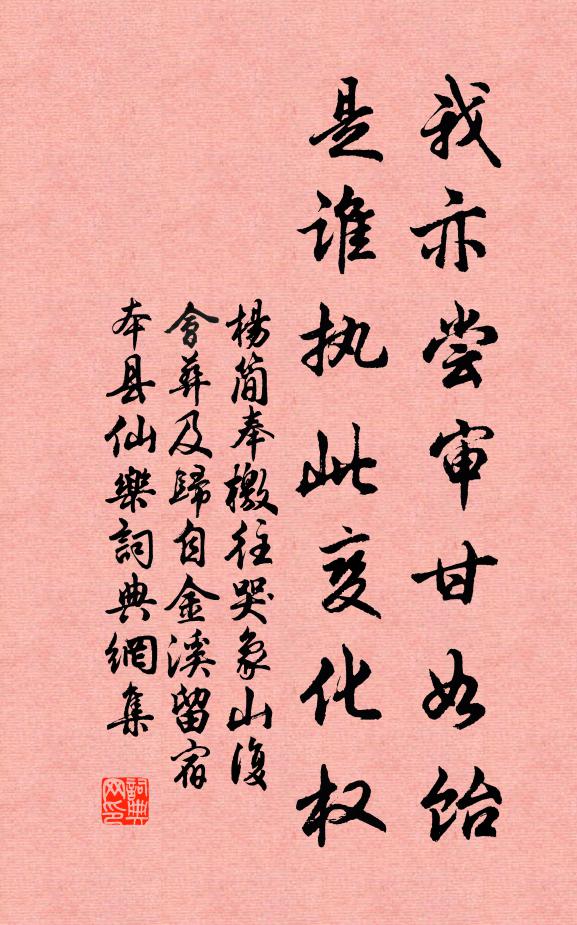 我亦尝审甘如饴
是谁执此变化权
楊简奉檄往哭象山復
會葬及歸自金溪留宿
本县仙樂詞典網集
詞典网印